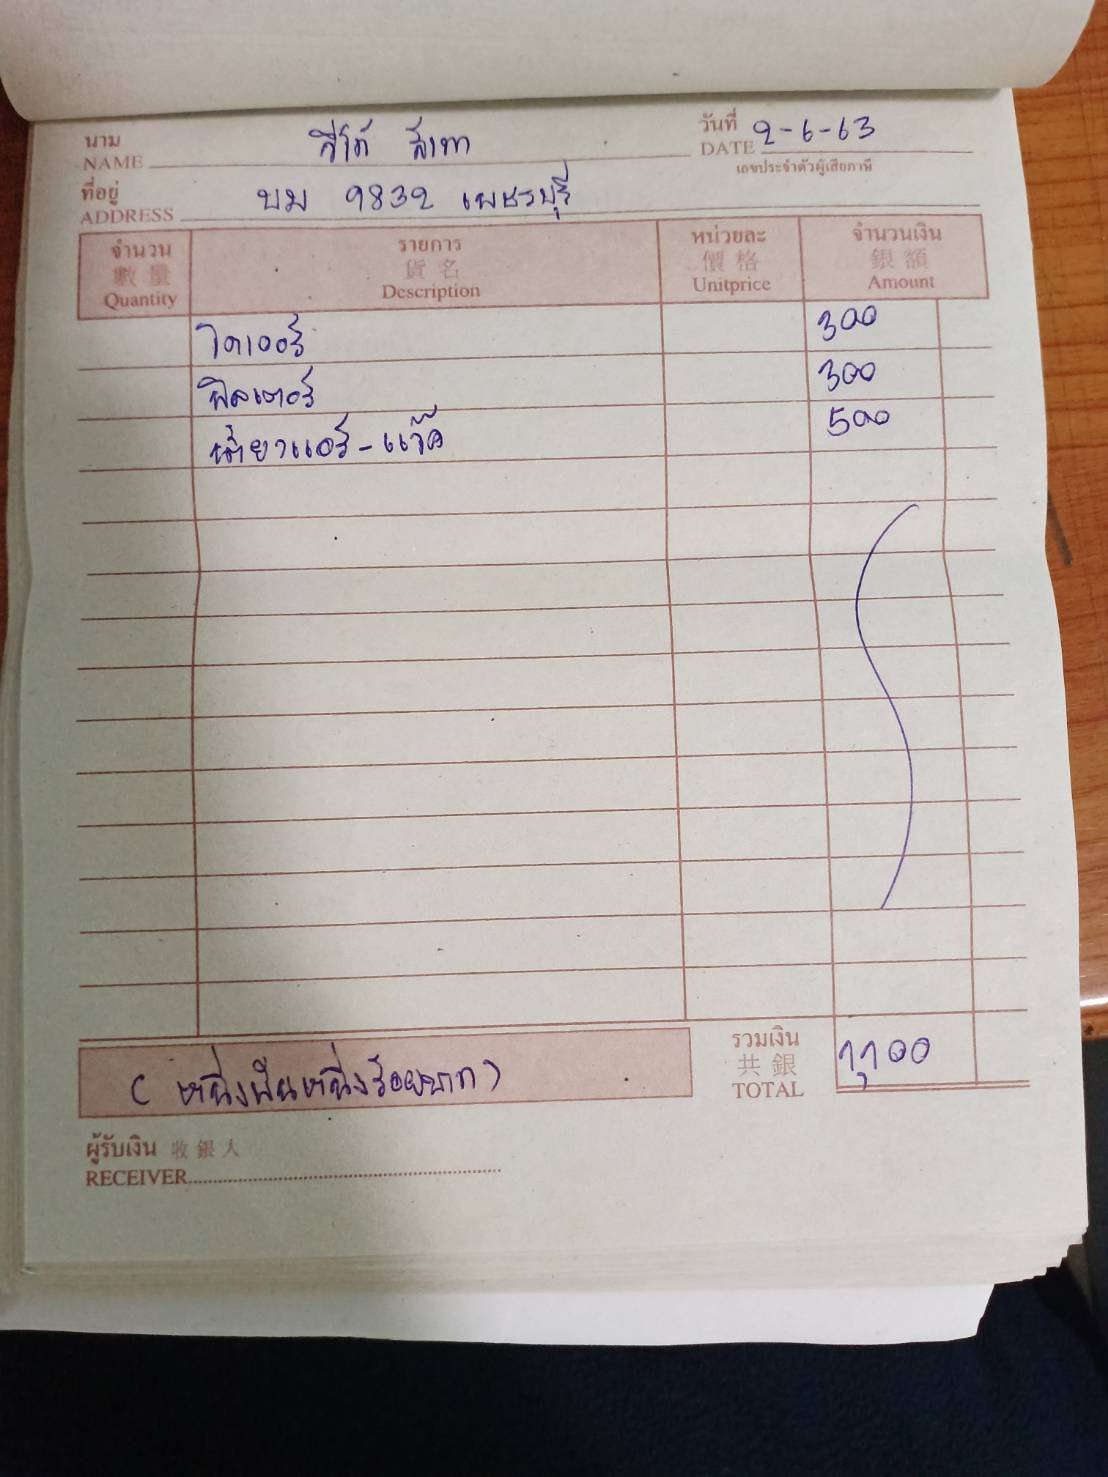 นาม
NAME สีโก้ สีเทา
วันที่
DATE 2-6-63
เลขประจำตัวผู้เสียภาษี
ที่อยู่
ADDRESS บม 9832 เพชรบุรี
จำนวน รายการ หน่วยละ จำนวนเงิน
數量 貨名 價格 銀額
Quantity Description Unitprice Amount
ไดเออร์ 300
ฟิลเตอร์ 300
น้ำยาแอร์-แว๊ค 500
รวมเงิน
共銀
TOTAL 1,100
(หนึ่งพันหนึ่งร้อยบาท)
ผู้รับเงิน 收銀人
RECEIVER